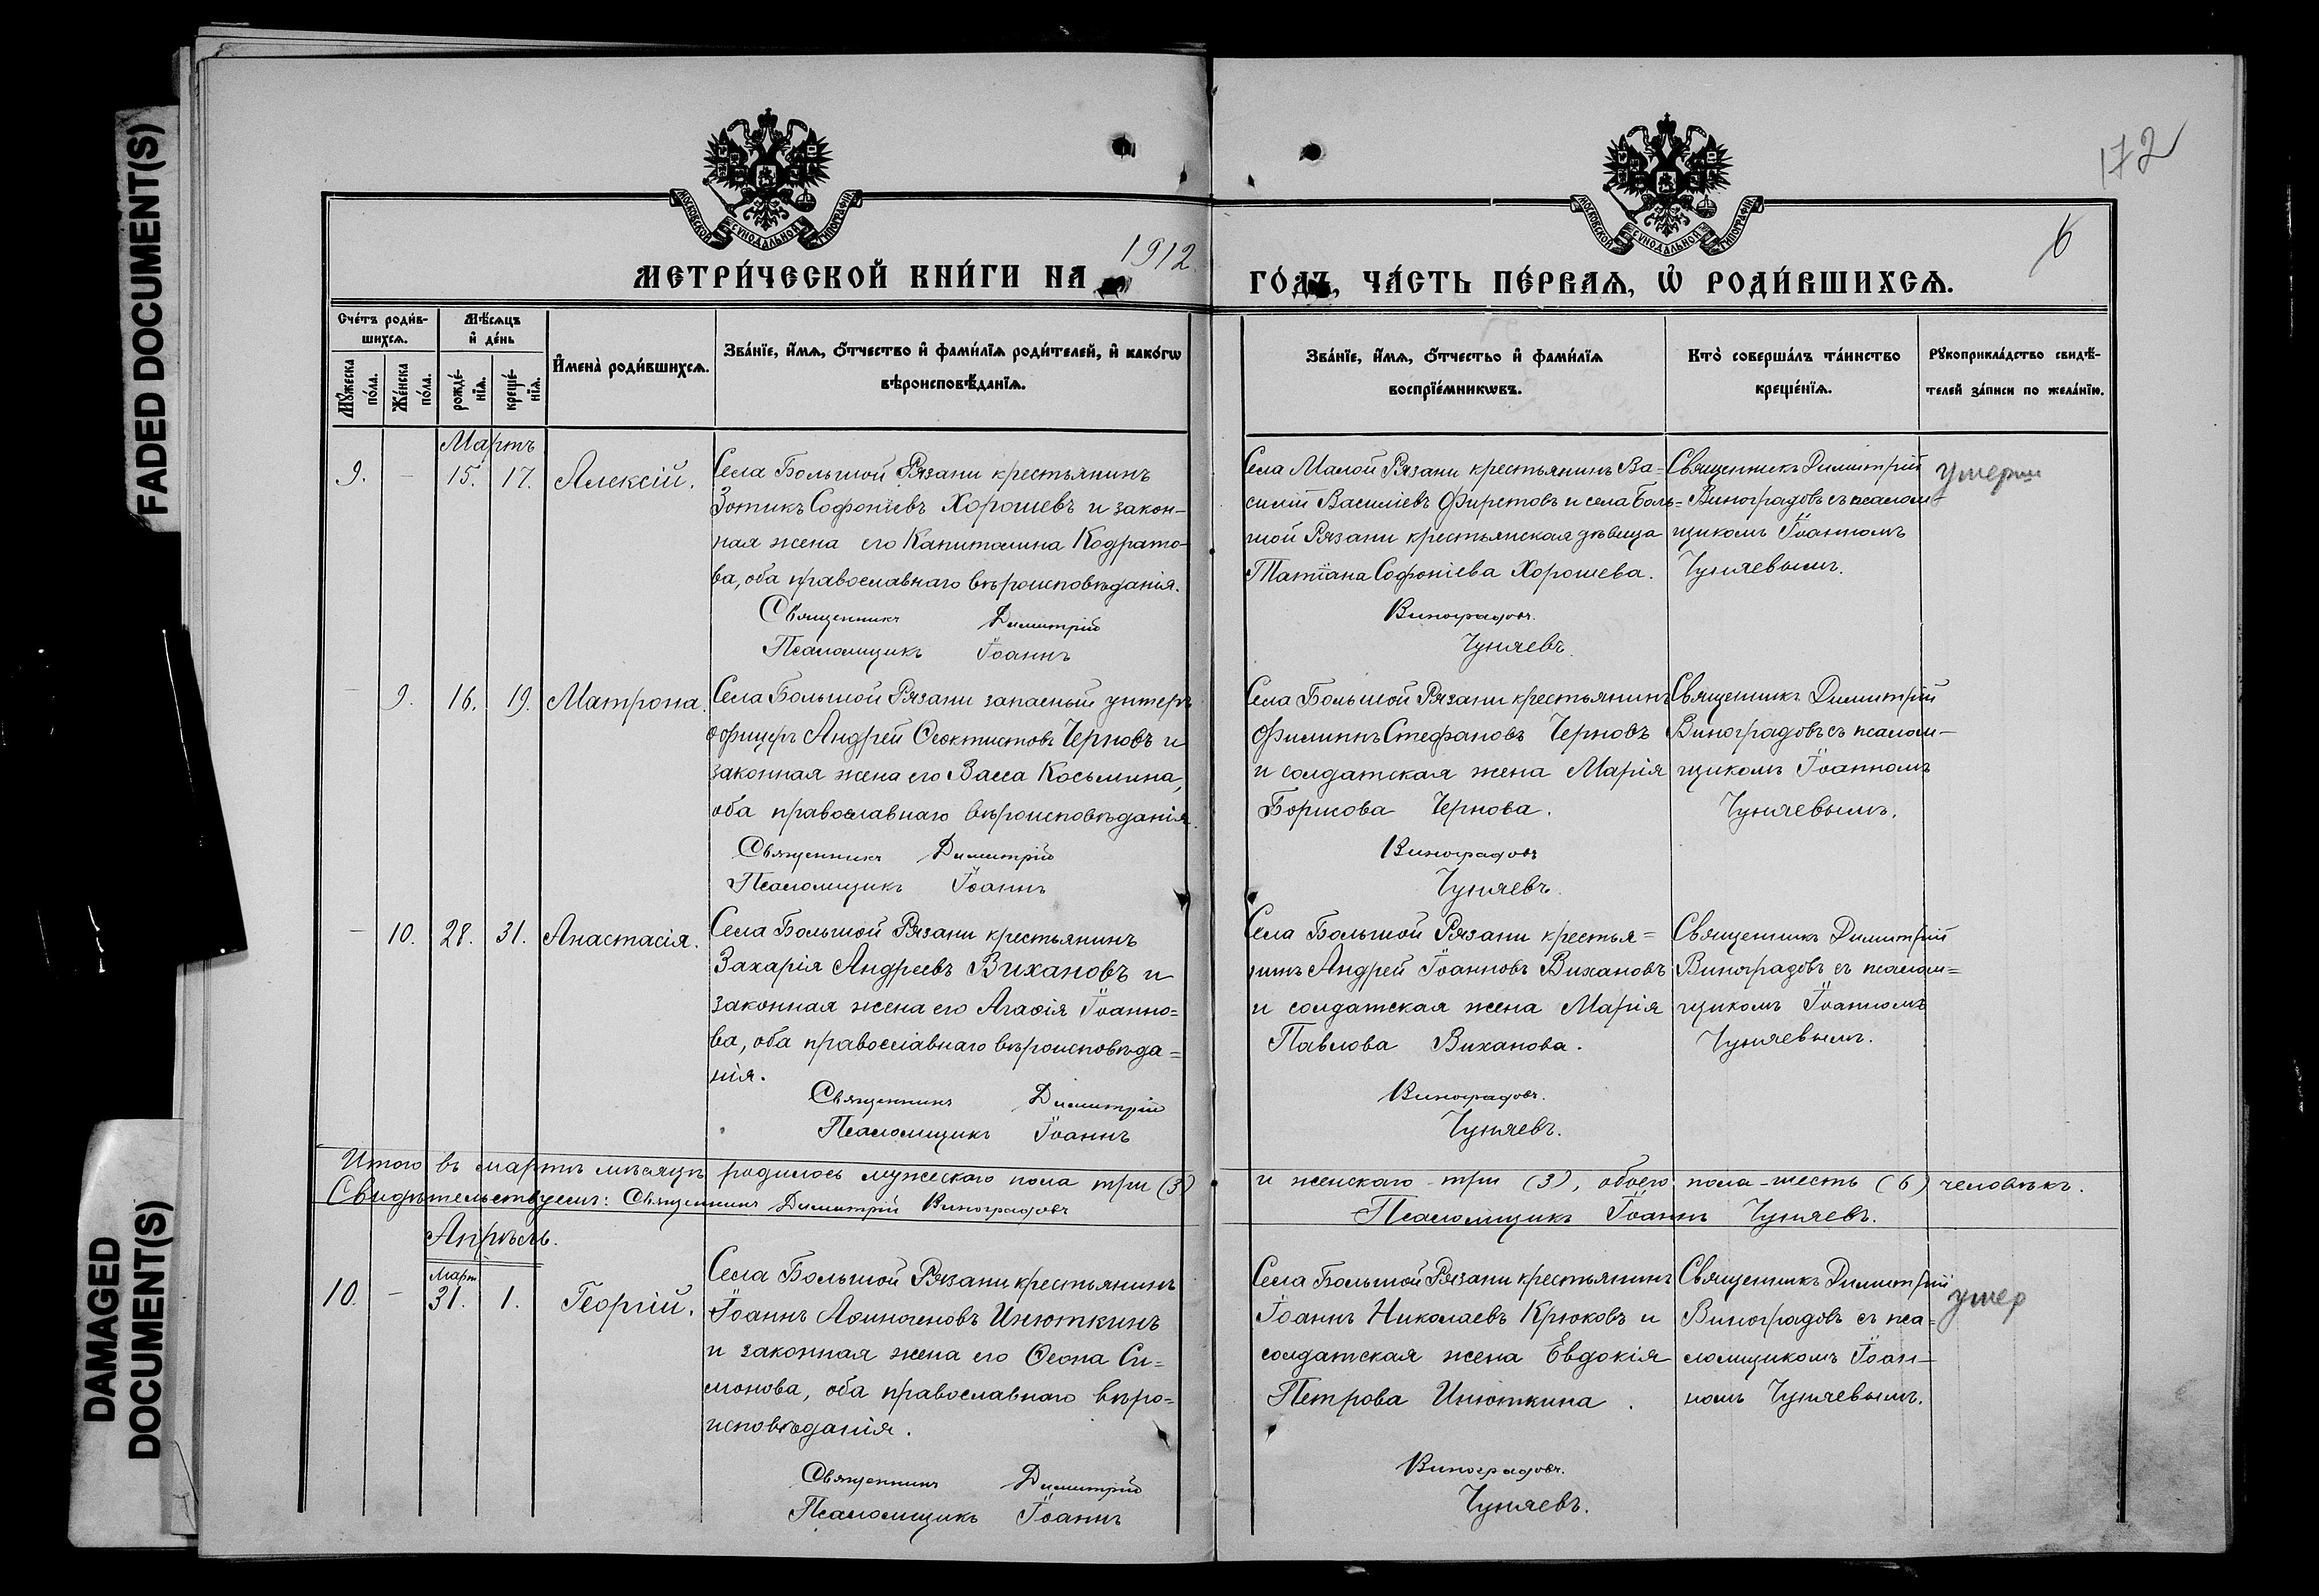 FADED DOCUMENT(S)
DAMAGED
DOCUMENT(S)
172
6
МОСКОВСКОЙ СѴНОДАЛЬНОЙ ТИПОГРАФІИ
МОСКОВСКОЙ СѴНОДАЛЬНОЙ ТИПОГРАФІИ
МЕТРИ́ЧЕСКОЙ КНИ́ГИ НА 1912.
ГО́ДЪ, ЧА́СТЬ ПЕ́РВАѦ, Ѡ҆ РОДИ́ВШИХСѦ.
Сче́тъ роди́в-
шихсѧ.
Мꙋ́жеска
по́ла.
Же́нска
по́ла.
Мѣ́сѧцъ
и҆ де́нь
рожде́-
нїѧ.
креще́-
нїѧ.
И҆мена̀ роди́вшихсѧ.
Зва́нїе, и҆́мѧ, ѻ҆́тчество и҆ фами́лїѧ роди́телей, и҆ како́гѡ
вѣроисповѣ́данїѧ.
Зва́нїе, и҆́мѧ, ѻ҆́тчестьо и҆ фами́лїѧ
воспрїе́мникѡвъ.
Кто̀ соверша́лъ та́инство
креще́нїѧ.
Рꙋкоприкла́дство свидѣ́-
телей за́писи по жела́нїю.
Мартъ
9. – 15. 17. Алексій.
Села Большой Рязани крестьянинъ
Зотикъ Софоніевъ Хорошевъ и закон-
ная жена его Капитолина Кодрато-
ва, оба православнаго вѣроисповѣданія.
Священникъ Димитрій
Псаломщикъ Іоаннъ
Села Малой Рязани крестьянинъ Ва=
силій Василіевъ Фирстовъ и села Боль=
шой Рязани крестьянская дѣвица
Татіана Софоніева Хорошева.
Виноградовъ.
Чуняевъ.
Священникъ Димитрій
Виноградовъ съ псалом-
щикомъ Іоанномъ
Чуняевымъ.
– 9. 16. 19. Матрона.
Села Большой Рязани запасный унтеръ
офицеръ Андрей Ѳеоктистовъ Черновъ и
законная жена его Васса Косьмина,
оба православнаго вѣроисповѣданія.
Священникъ Димитрій
Псаломщикъ Іоаннъ
Села Большой Рязани крестьянинъ
Филиппъ Стефановъ Черновъ
и солдатская жена Марія
Борисова Чернова.
Виноградовъ
Чуняевъ.
Священникъ Димитрій
Виноградовъ съ псалом-
щикомъ Іоанномъ
Чуняевымъ.
– 10. 28. 31. Анастасія.
Села Большой Рязани крестьянинъ
Захарія Андреевъ Вихановъ и
законная жена его Агаѳія Іоанно=
ва, оба православнаго вѣроисповѣда=
нія.
Священникъ Димитрій
Псаломщикъ Іоаннъ
Села Большой Рязани крестья=
нинъ Андрей Іоанновъ Вихановъ
и солдатская жена Марія
Павлова Виханова.
Виноградовъ.
Чуняевъ.
Священникъ Димитрій
Виноградовъ съ псалом=
щикомъ Іоанномъ
Чуняевымъ.
Итого въ мартѣ мѣсяцѣ родилось мужескаго пола три (3)
и женскаго три (3), обоего пола – шесть (6) человѣкъ.
Свидѣтельствуемъ: Священникъ Димитрій Виноградовъ
Псаломщикъ Іоаннъ Чуняевъ.
Апрѣль.
Март
10. – 31. 1. Георгій.
Села Большой Рязани крестьянинъ
Іоаннъ Аѳиногеновъ Инюткинъ
и законная жена его Ѳеона Си=
монова, оба православнаго вѣро=
исповѣданія.
Священникъ Димитрій
Псаломщикъ Іоаннъ
Села Большой Рязани крестьянинъ
Іоаннъ Николаевъ Крюковъ и
солдатская жена Евдокія
Петрова Инюткина.
Виноградовъ.
Чуняевъ.
Священникъ Димитрій
Виноградовъ съ пса-
ломщикомъ Іоан-
номъ Чуняевымъ.
умер